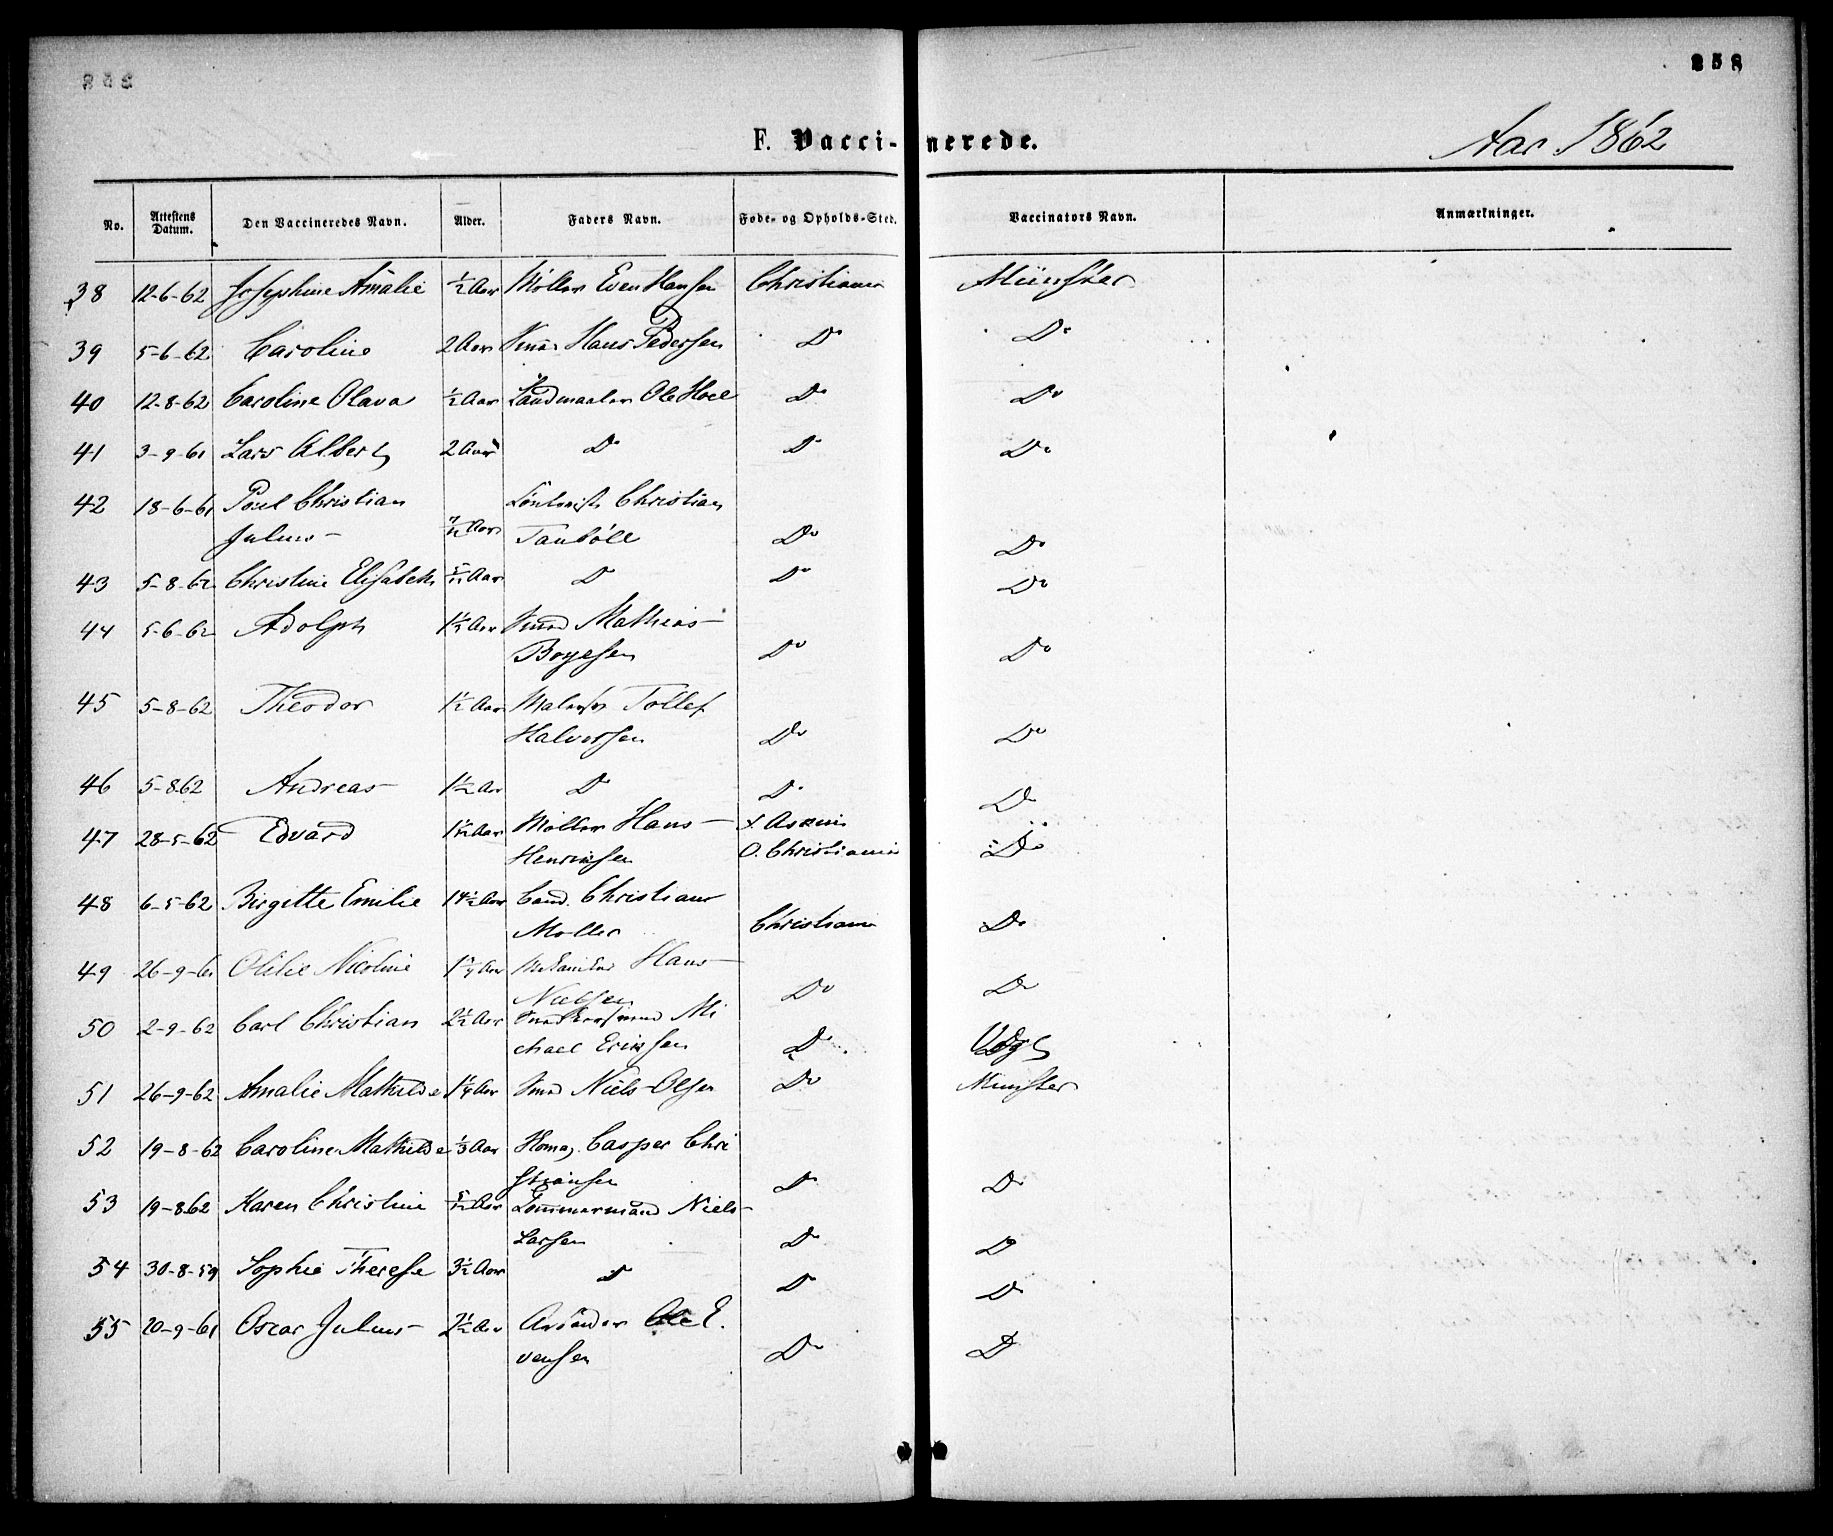 258
F. Vaccinerede.
Aar 1862
No. Attestens Datum. Den Vaccineredes Navn. Alder. Faders Navn. Føde- og Opholds-Sted. Vaccinators Navn. Anmærkninger.
38 12-6-62 Josephine Amalie ½ Aar Møller Even Hansen Christiania Münster
39 5-6-62 Caroline 2 Aar Hans Pedersen Do Do
40 12-8-62 Caroline Olava ½ Aar Ole Hoel Do Do
41 3-9-61 Lars Albert 2 Aar Do Do Do
42 18-6-61 Poul Christian Christian
Julius Aar Taubøll Do Do
43 5-8-62 Christine Elisabeth Aar Do Do Do
44 5-6-62 Adolph 1½ Aar Mathias
Boyesen Do Do
45 5-8-62 Theodor 1½ Aar Tollef
Halvorsen Do Do
46 5-8 62 Andreas 1½ Aar Do Do Do
47 28-5-62 Edvard Aar Møller Hans F. Askim
Henriksen O. Christiania Do
48 6-5-62 Birgitte Emilie 14½ Aar Cand. Christian
Møller Christiania Do
49 26-9-61 Nicoline Aar Hans
Nielsen Do Do
50 2-9-62 Carl Christian 2½ Aar Mi
chael Eriksen Do Vogt
51 26-9-62 Amalie Mathilde 1¼ Aar Niels Olsen Do Münster
52 19-8-62 Caroline Mathilde ⅓ Aar Casper Chri
stiansen Do Do
53 19-8 62 Karen Christine 5/12 Aar Tømmermand Niels
Larsen Do Do
54 30-8-59 Sophie Therese 3½ Aar Do Do Do
55 20-9-61 Oscar Julius 2½ Aar Ole E.
vensen Do Do